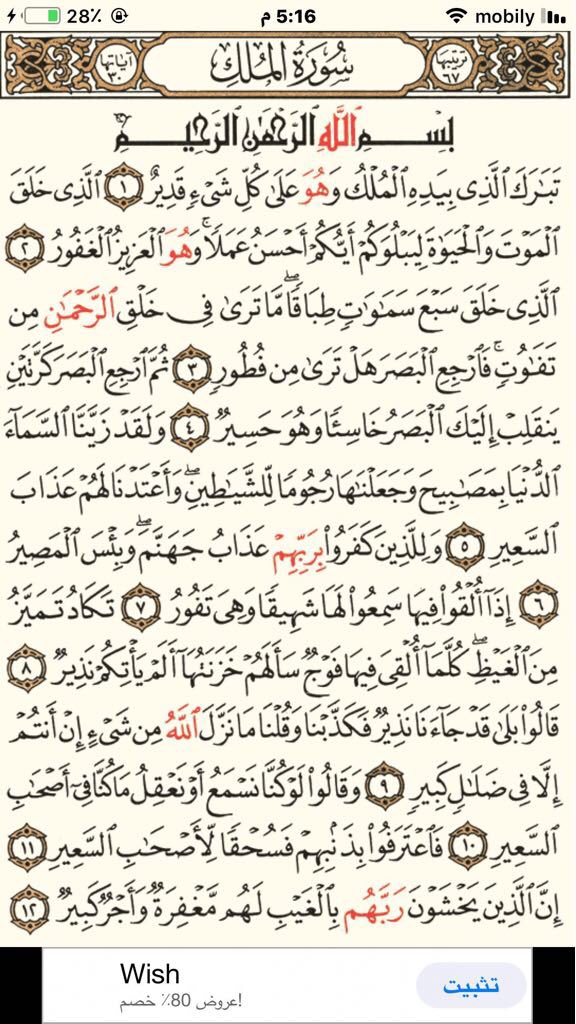 28٪ 5:16 م mobily
ترتيبها ٦٧ سُورَةُ المُلْكِ آياتها ٣٠
بِسْمِ ٱللَّهِ ٱلرَّحْمَٰنِ ٱلرَّحِيمِ
تَبَٰرَكَ ٱلَّذِى بِيَدِهِ ٱلْمُلْكُ وَهُوَ عَلَىٰ كُلِّ شَىْءٍ قَدِيرٌ ١ ٱلَّذِى خَلَقَ
ٱلْمَوْتَ وَٱلْحَيَوٰةَ لِيَبْلُوَكُمْ أَيُّكُمْ أَحْسَنُ عَمَلًا ۚ وَهُوَ ٱلْعَزِيزُ ٱلْغَفُورُ ٢
ٱلَّذِى خَلَقَ سَبْعَ سَمَٰوَٰتٍ طِبَاقًا ۖ مَّا تَرَىٰ فِى خَلْقِ ٱلرَّحْمَٰنِ مِن
تَفَٰوُتٍ ۖ فَٱرْجِعِ ٱلْبَصَرَ هَلْ تَرَىٰ مِن فُطُورٍ ٣ ثُمَّ ٱرْجِعِ ٱلْبَصَرَ كَرَّتَيْنِ
يَنقَلِبْ إِلَيْكَ ٱلْبَصَرُ خَاسِئًا وَهُوَ حَسِيرٌ ٤ وَلَقَدْ زَيَّنَّا ٱلسَّمَآءَ
ٱلدُّنْيَا بِمَصَٰبِيحَ وَجَعَلْنَٰهَا رُجُومًا لِّلشَّيَٰطِينِ ۖ وَأَعْتَدْنَا لَهُمْ عَذَابَ
ٱلسَّعِيرِ ٥ وَلِلَّذِينَ كَفَرُوا۟ بِرَبِّهِمْ عَذَابُ جَهَنَّمَ ۖ وَبِئْسَ ٱلْمَصِيرُ
٦ إِذَآ أُلْقُوا۟ فِيهَا سَمِعُوا۟ لَهَا شَهِيقًا وَهِىَ تَفُورُ ٧ تَكَادُ تَمَيَّزُ
مِنَ ٱلْغَيْظِ ۖ كُلَّمَآ أُلْقِىَ فِيهَا فَوْجٌ سَأَلَهُمْ خَزَنَتُهَآ أَلَمْ يَأْتِكُمْ نَذِيرٌ ٨
قَالُوا۟ بَلَىٰ قَدْ جَآءَنَا نَذِيرٌ فَكَذَّبْنَا وَقُلْنَا مَا نَزَّلَ ٱللَّهُ مِن شَىْءٍ إِنْ أَنتُمْ
إِلَّا فِى ضَلَٰلٍ كَبِيرٍ ٩ وَقَالُوا۟ لَوْ كُنَّا نَسْمَعُ أَوْ نَعْقِلُ مَا كُنَّا فِىٓ أَصْحَٰبِ
ٱلسَّعِيرِ ١٠ فَٱعْتَرَفُوا۟ بِذَنۢبِهِمْ فَسُحْقًا لِّأَصْحَٰبِ ٱلسَّعِيرِ ١١
إِنَّ ٱلَّذِينَ يَخْشَوْنَ رَبَّهُم بِٱلْغَيْبِ لَهُم مَّغْفِرَةٌ وَأَجْرٌ كَبِيرٌ ١٢
Wish
عروض 80٪ خصم!
تثبيت